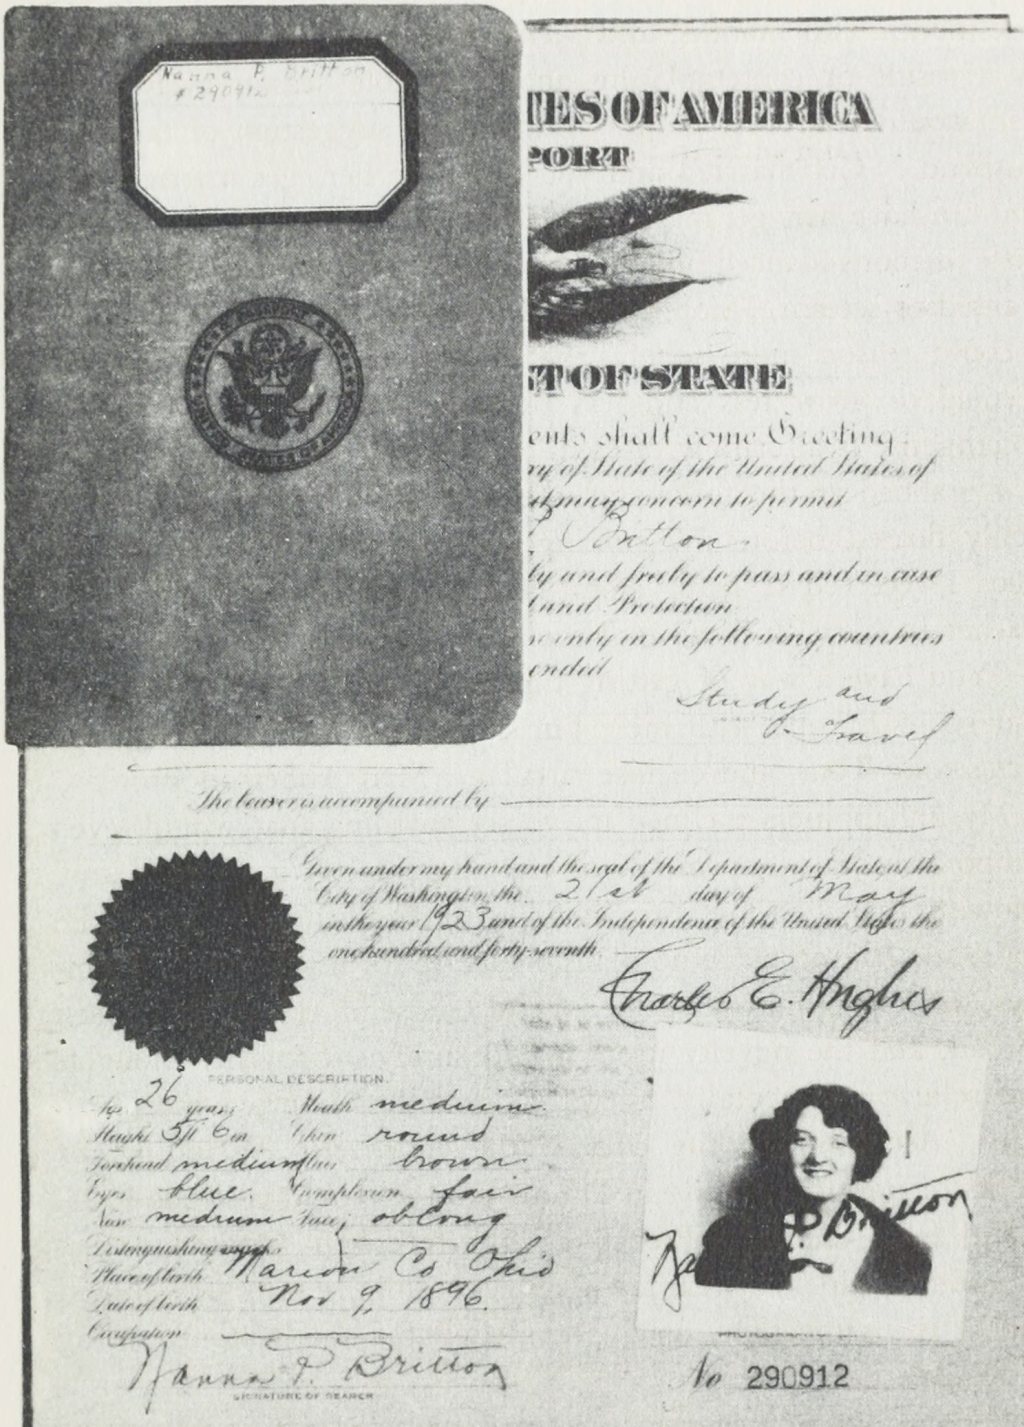 Nanna P. Britton
# 290912
PASSPORT
UNITED STATES OF AMERICA
TES OF AMERICA
PORT
T OF STATE
ents shall come Greeting:
ry of State of the United States of
it may concern to permit
P Britton
ly and freely to pass and in case
and Protection
only in the following countries
ended
Study and
Travel
The bearer is accompanied by
Given under my hand and the seal of the Department of State at the
City of Washington, the 21st day of May
in the year 1923 and of the Independence of the United States the
one hundred and forty-seventh.
Charles E. Hughes
PERSONAL DESCRIPTION.
Age 26 years Mouth medium
Height 5 ft 6 in Chin round
Forehead medium Hair brown
Eyes blue. Complexion fair
Nose medium Face oblong
Distinguishing marks
Place of birth Marion Co Ohio
Date of birth Nov 9, 1896.
Occupation
Nanna P. Britton
SIGNATURE OF BEARER
Na P. Britton
PHOTOGRAPH OF
No 290912